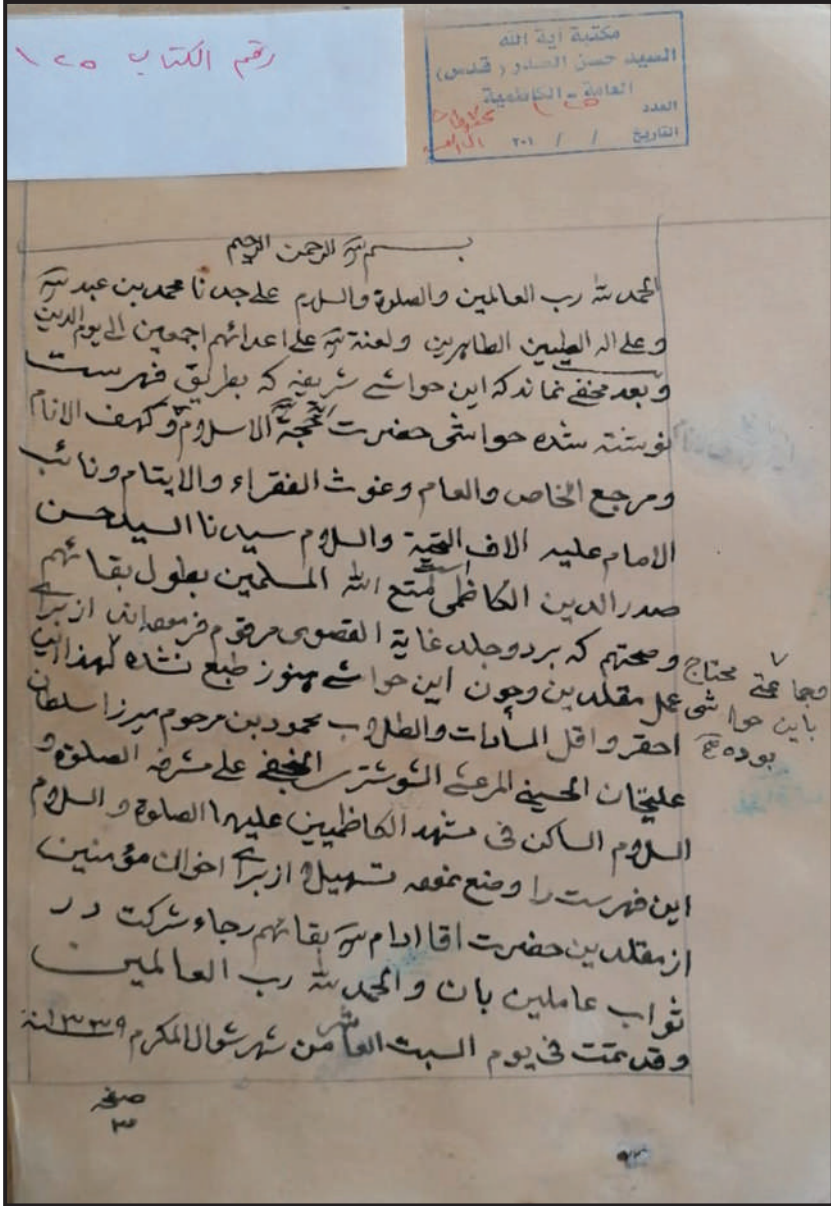 رقم الكتاب ١٢٥
مكتبة آية الله
السيد حسن الصدر (قدس)
العامة - الكاظمية
العدد ١٢٥
التاريخ / / ٢٠١
بسم الله الرحمن الرحيم
الحمد لله رب العالمين والصلوة والسلام على جدنا محمد بن عبد الله
وعلى اله الطيبين الطاهرين ولعنة الله على اعدائهم اجمعين الى يوم الدين
وبعد مخفى نماند كه اين حواشى شريفه كه بطريق فهرست
نوشته شده حواشى حضرت حجة الاسلام وكهف الانام
ومرجع الخاص والعام وغوث الفقراء والايتام ونائب
الامام عليه الاف التحية والسلام سيدنا السيد حسن
صدر الدين الكاظمى است متع الله المسلمين بطول بقائهم
وصحتهم كه بر دو جلد غاية القصوى مرقوم فرموده اند از براى
عمل مقلدين وچون اين حواشى هنوز طبع نشده لهذا اين
احقر واقل السادات والطلاب محمود بن مرحوم ميرزا سلطان
عليخان الحسينى المرعشى الشوشترى النجفى على مشرفه الصلوة و
السلام الساكن فى مشهد الكاظميين عليهما الصلوة والسلام
اين فهرست را وضع نموده تسهيلا از براى اخوان مؤمنين
از مقلدين حضرت اقا ادام الله بقائهم رجاء شركت در
ثواب عاملين بان والحمد لله رب العالمين
وقد تمت فى يوم السبت العاشر من شهر شوال المكرم ١٣٣٩ سنة
وجماعتى محتاج
باين حواشى
بوده
صفحه
٣